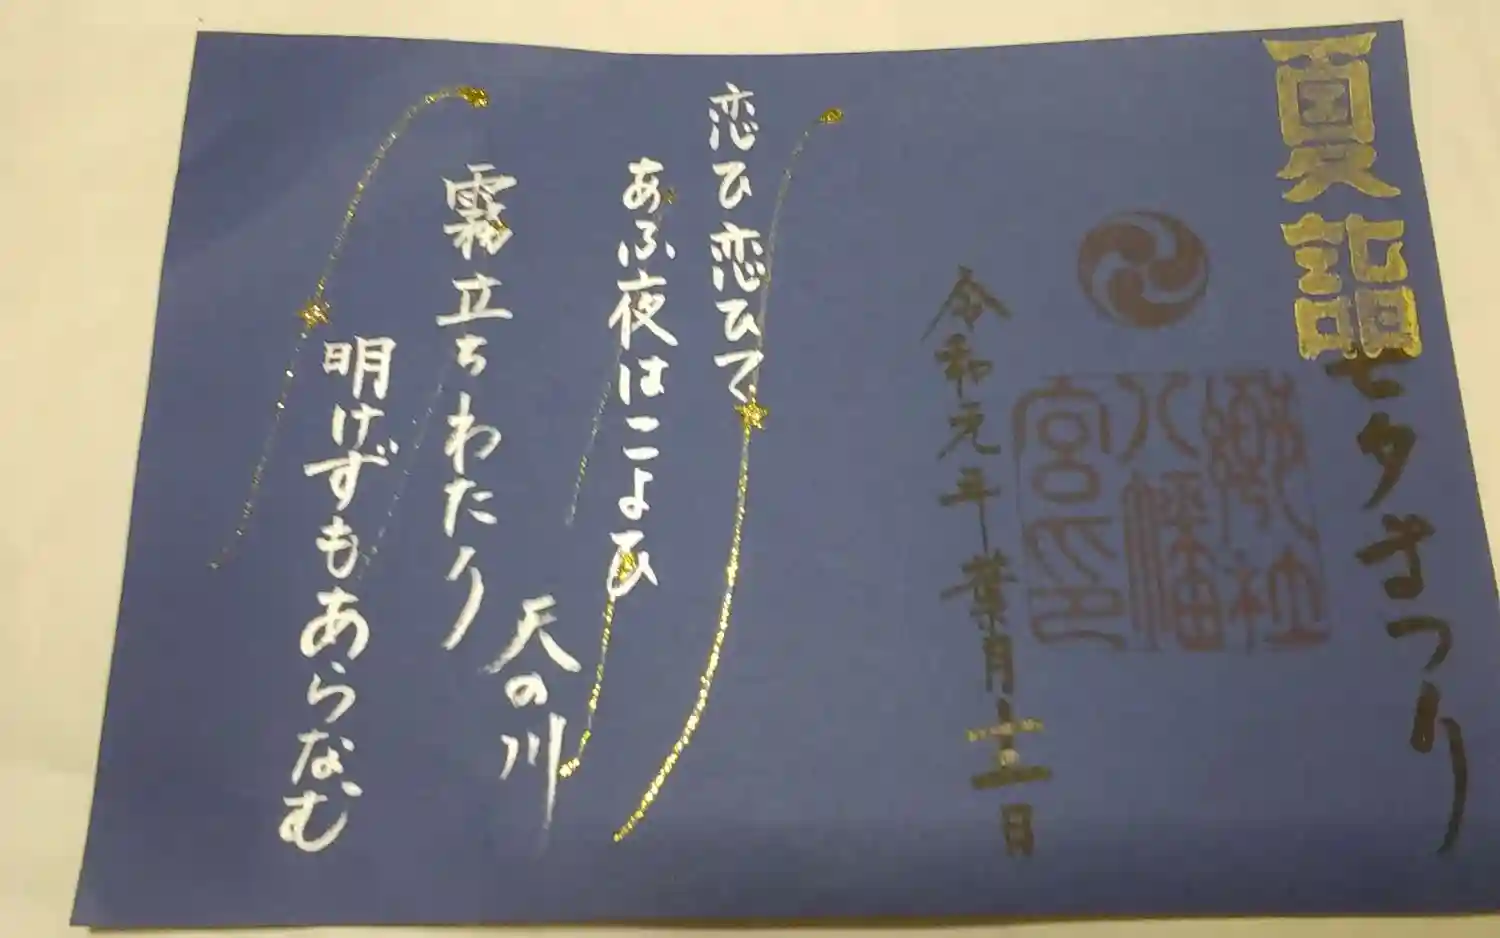 夏詣七夕まつり
郷社
八幡
宮印
令和元年葉月十二日
恋ひ恋ひて
あふ夜はこよひ
天の川
霧立ちわたり
明けずもあらなむ